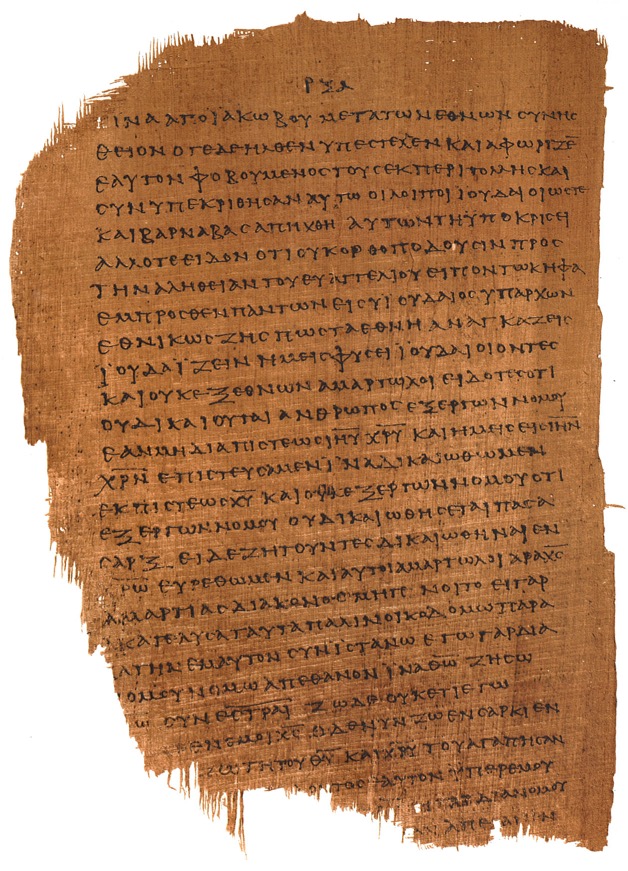 ΡΞΑ
ΤΙΝΑΑΠΟΪΑΚΩΒΟΥΜΕΤΑΤΩΝΕΘΝΩΝϹΥΝΗϹ
ΘΕΙΟΝΟΤΕΔΕΗΛΘΕΝΥΠΕϹΤΕΛΛΕΝΚΑΙΑΦΩΡΙΖΕ̅
ΕΑΥΤΟΝΦΟΒΟΥΜΕΝΟϹΤΟΥϹΕΚΠΕΡΙΤΟΜΗϹΚΑΙ
ϹΥΝΥΠΕΚΡΙΘΗϹΑΝΑΥΤΩΟΙΛΟΙΠΟΙΪΟΥΔΑΙΟΙΩϹΤΕ
ΚΑΙΒΑΡΝΑΒΑϹϹΑΠΗΧΘΗΑΥΤΩΝΤΗΫΠΟΚΡΙϹΕΙ
ΑΛΛΟΤΕΕΙΔΟΝΟΤΙΟΥΚΟΡΘΟΠΟΔΟΥϹΙΝΠΡΟϹ
ΤΗΝΑΛΗΘΕΙΑΝΤΟΥΕΥΑΓΓΕΛΙΟΥΕΙΠΟΝΤΩΚΗΦΑ
ΕΜΠΡΟϹΘΕΝΠΑΝΤΩΝΕΙϹΥΪΟΥΔΑΙΟϹΫΠΑΡΧΩΝ
ΕΘΝΙΚΩϹΖΗϹΠΩϹΤΑΕΘΝΗΑΝΑΓΚΑΖΕΙϹ
ΪΟΥΔΑΪΖΕΙΝΗΜΕΙϹΦΥϹΕΙΪΟΥΔΑΙΟΙΟΝΤΕϹ
ΚΑΙΟΥΚΕΞΕΘΝΩΝΑΜΑΡΤΩΛΟΙΕΙΔΟΤΕϹΟΤΙ
ΟΥΔΙΚΑΙΟΥΤΑΙΑΝΘΡΩΠΟϹΕΞΕΡΓΩΝΝΟΜΟΥ
ΕΑΝΜΗΔΙΑΠΙϹΤΕΩϹΙ̅Η̅Υ̅Χ̅Ρ̅Υ̅ΚΑΙΗΜΕΙϹΕΙϹΙ̅Η̅Ν̅
Χ̅Ρ̅Ν̅ΕΠΙϹΤΕΥϹΑΜΕΝΪΝΑΔΙΚΑΙΩΘΩΜΕΝ
ΕΚΠΙϹΤΕΩϹΧ̅Υ̅ΚΑΙΟΥΚΕΞΕΡΓΩΝΝΟΜΟΥΟΤΙ
ΕΞΕΡΓΩΝΝΟΜΟΥΟΥΔΙΚΑΙΩΘΗϹΕΤΑΙΠΑϹΑ
ϹΑΡΞΕΙΔΕΖΗΤΟΥΝΤΕϹΔΙΚΑΙΩΘΗΝΑΙΕΝ
Χ̅Ρ̅Ω̅ΕΥΡΕΘΩΜΕΝΚΑΙΑΥΤΟΙΑΜΑΡΤΩΛΟΙΑΡΑΧ̅Ϲ̅
ΑΜΑΡΤΙΑϹΔΙΑΚΟΝΟϹΜΗΓΕΝΟΙΤΟΕΙΓΑΡ
ΑΚΑΤΕΛΥϹΑΤΑΥΤΑΠΑΛΙΝΟΙΚΟΔΟΜΩΠΑΡΑ
ΑΤΗΝΕΜΑΥΤΟΝϹΥΝΙϹΤΑΝΩΕΓΩΓΑΡΔΙΑ
ΟΜΟΥΝΟΜΩΑΠΕΘΑΝΟΝΪΝΑΘ̅Ω̅ΖΗϹΩ
Ω̅ϹΥΝΕϹΤΡΑΙΖΩΔΕΟΥΚΕΤΙΕΓΩ
ΕΝΕΜΟΙΧ̅Ϲ̅ΟΔΕΝΥΝΖΩΕΝϹΑΡΚΙΕΝ
ΖΩΤΗΤΟΥΘ̅Υ̅ΚΑΙΧ̅Ρ̅Υ̅ΤΟΥΑΓΑΠΗϹΑΝ
ΟΝΤΟϹΕΑΥΤΟΝΫΠΕΡΕΜΟΥ
ΕΙΓΑΡΔΙΑΝΟΜΟΥ
ΑΠΕΘΑΝΕΝ